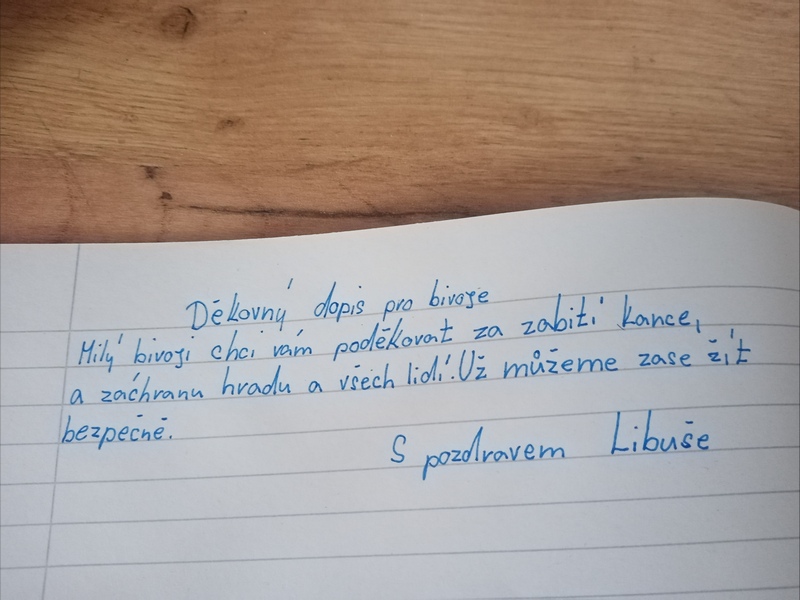 Děkovný dopis pro bivoje
Milý bivoji chci vám poděkovat za zabití kance,
a záchranu hradu a všech lidí. Už můžeme zase žít
bezpečně.
S pozdravem Libuše